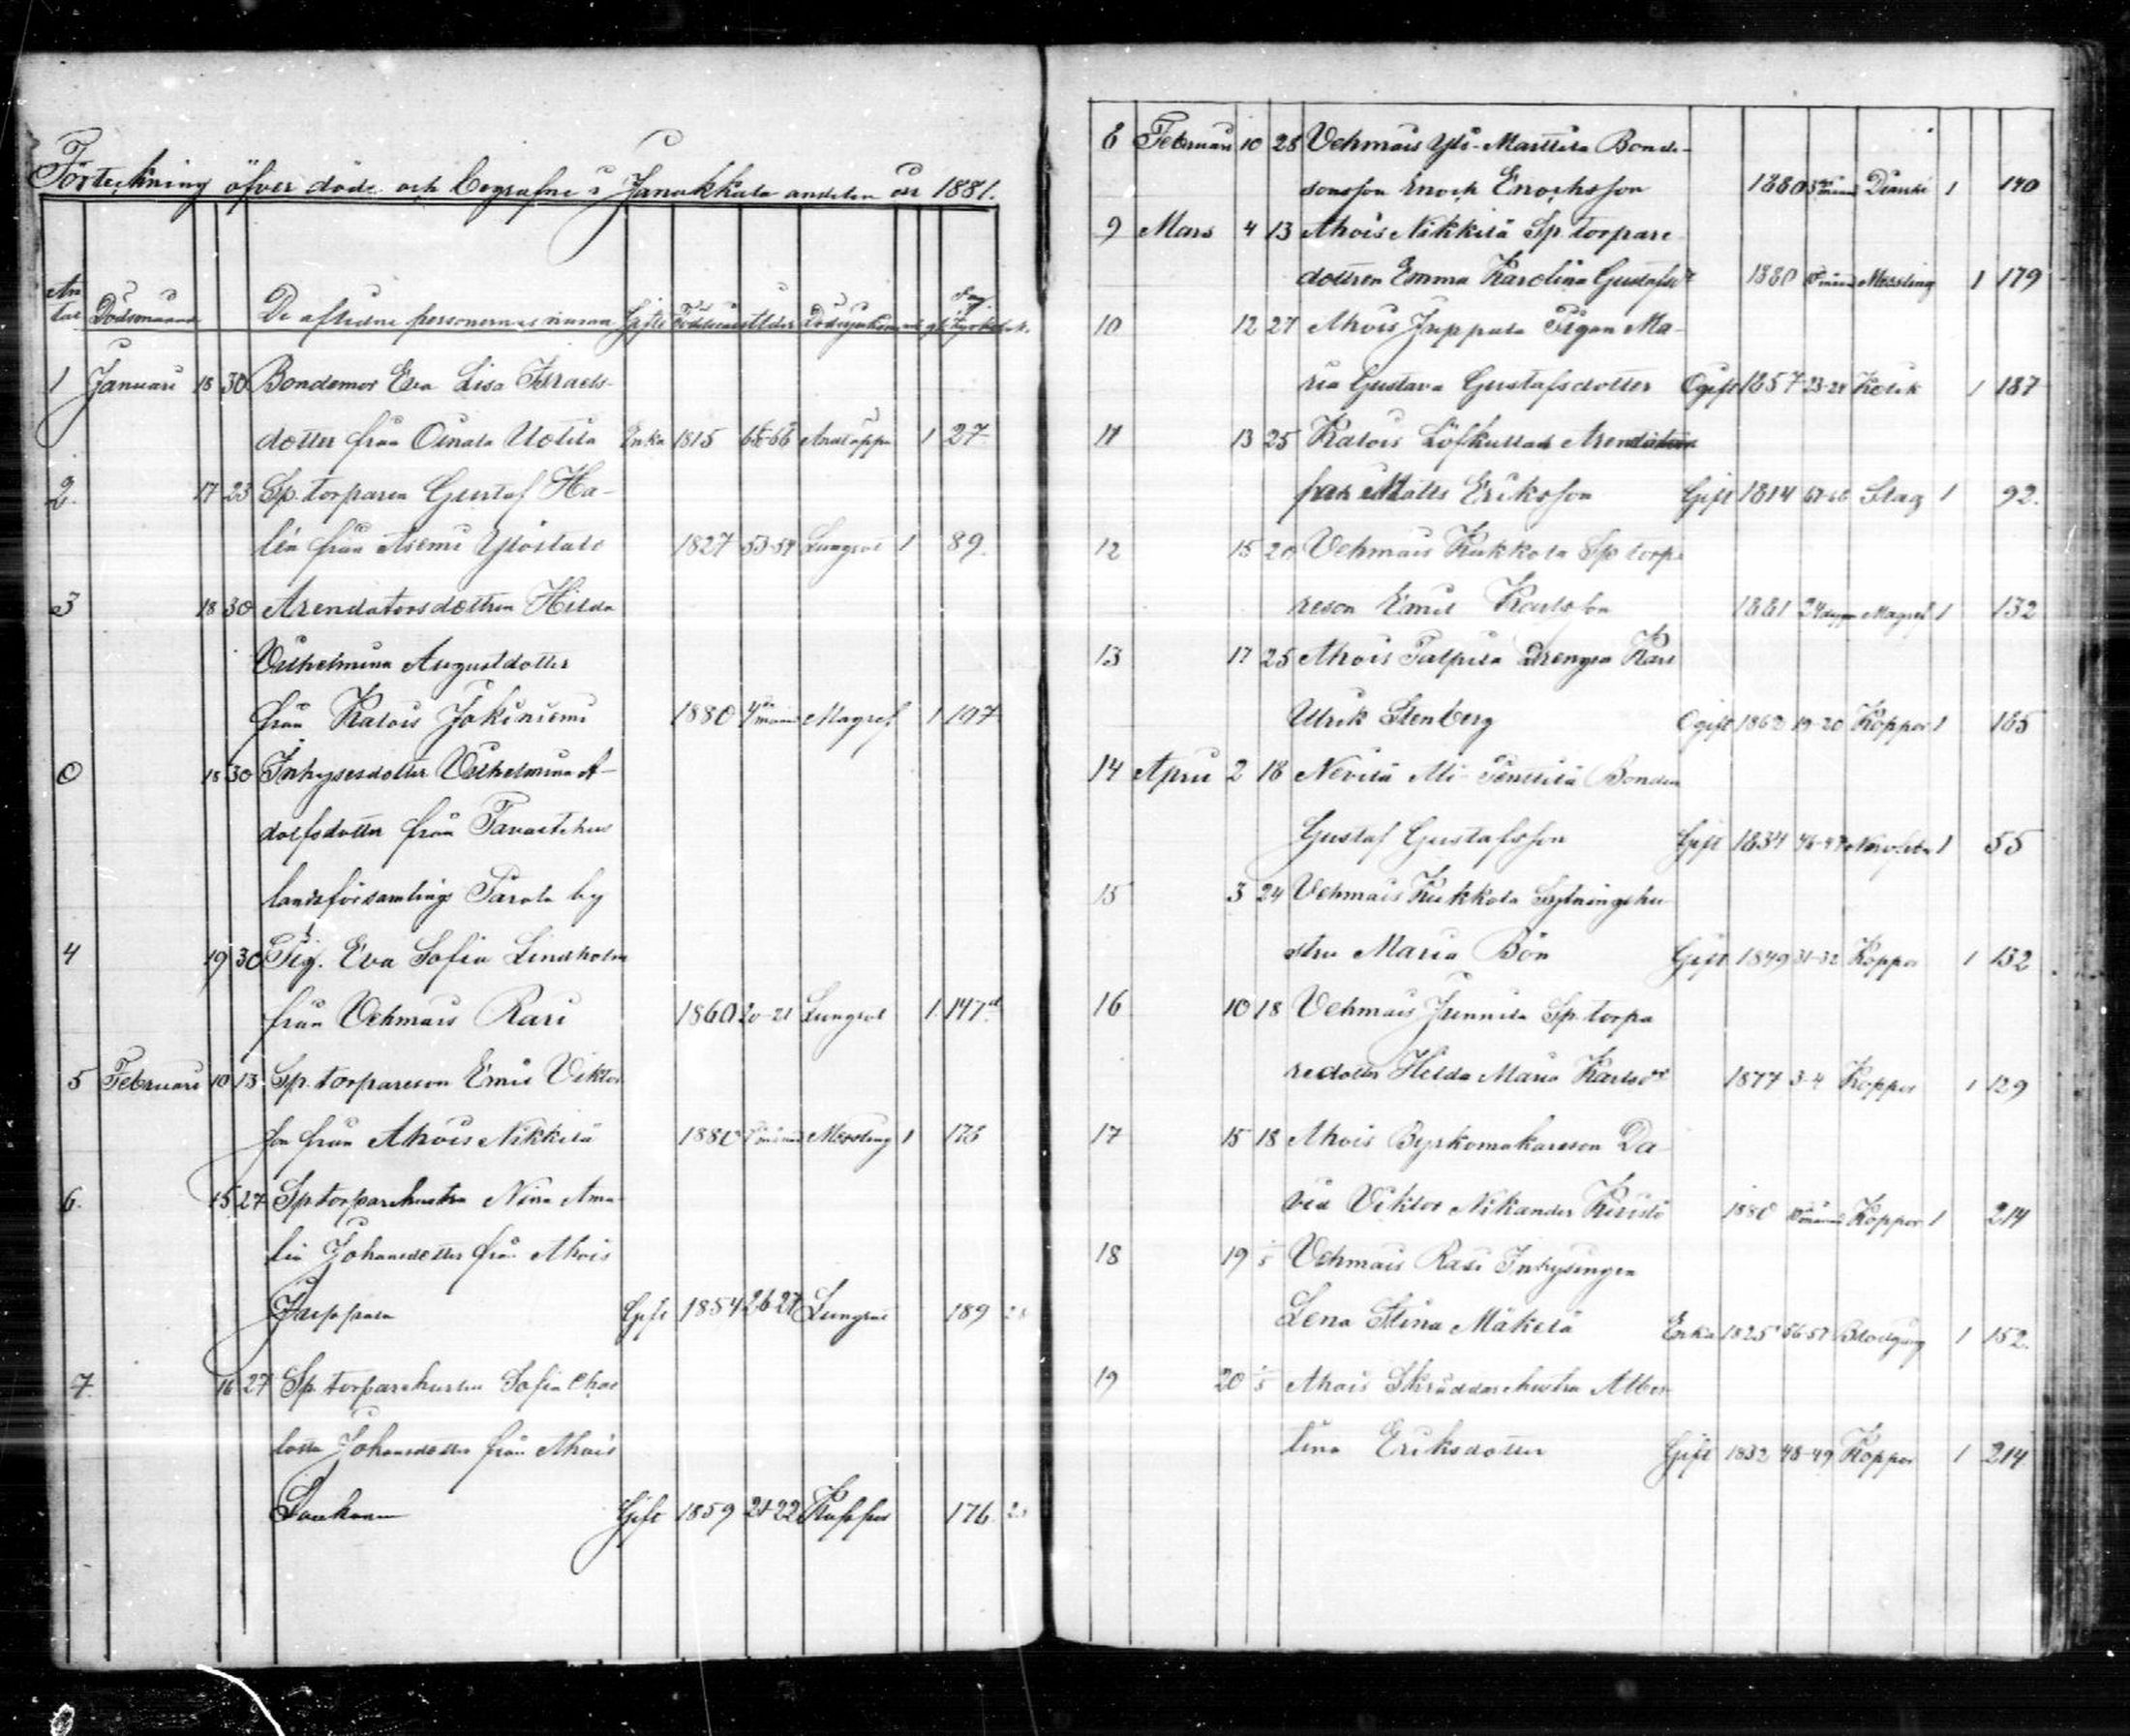 Förteckning öfver döde och begrafne i Janakkala andelen år 1881.
An
tal Dödsmånad De aflidne personernes namn Gifte Födelseår Ålder Dödsjukdom
1 Januari 18 30 Bondemor Eva Lisa Israels-
dotter från Oinala Uotila Enka 1815 65-66 Andtäppa 1 27
2. 17 23 Sp. torparen Gustaf Ha-
lén från Niemi 1827 53-54 Lungsot 1 89.
3 18 30 Arendatorsdottren Hilda
Vilhelmina Augustdotter
från Kalois Jokiniemi 1880 4 mån Magref 1 197
0 18 30 Inhysesdotter Vilhelmina A-
dolfsdotter från Tavastehus
landsförsamlings Parola by
4 19 30 Pig. Eva Sofia Lindholm
från Vehmais Rasi 1860 20-21 Lungsot 1 147
5 Februari 10 13 Sp. torpareson Emil Viktor
son från Ahois Nikkilä 1880 Messling 1 175
6. 15 27 Sp torparehustru Nina Ama-
lia Johansdotter från Ahois
Juppala Gift 1854 26-27 Lungsot 189
7. 16 27 Sp. torparehustru Sofia Char
lotta Johansdotter från Ahois
Gift 1859 21-22 Koppor 176
8 Februari 10 28 Vehmais Yli-Marttila Bonde-
sonsson Enoch Enochsson 1880 1 140
9 Mars 4 13 Ahois Nikkilä Sp. torpare
dottren Emma Karolina Gustafsdr 1880 Messling 1 179
10 12 27 Ahois Juppala Pigan Ma-
ria Gustava Gustafsdotter Ogift 1857 23-24 Kolik 1 187
11 13 25 Kalois Löfkullas Arendators
Matts Eriksson Gift 1814 Slag 1 92.
12 15 20 Vehmais Kukkola Sp torpa
reson Emil Karlsson 1881 24 dygn Magref 1 132
13 17 25 Ahois Palpila Drengen Karl
Ulrik Stenberg Ogift 1862 19-20 Koppor 1 165
14 April 2 18 Nevilä Ali-Penttilä Bonden
Gustaf Gustafsson Gift 1834 46-47 1 55
15 3 24 Vehmais Kukkola Sytningshu
stru Maria Bön Gift 1849 31-32 Koppor 1 132
16 10 18 Vehmais Junnila Sp. torpa
redotter Hilda Maria Karlsdr 1877 3-4 Koppor 1 129
17 15 18 Ahois Byrkomakareson Da
vid Viktor Nikander 1880 Koppor 1 214
18 19 1/5 Vehmais Rasi Inhysingen
Lena Stina Mäkelä Enka 1825 56-57 Blodgång 1 152.
19 20 1/5 Ahois Skräddarehustru Alber
tina Eriksdotter Gift 1832 48-49 Koppor 1 214